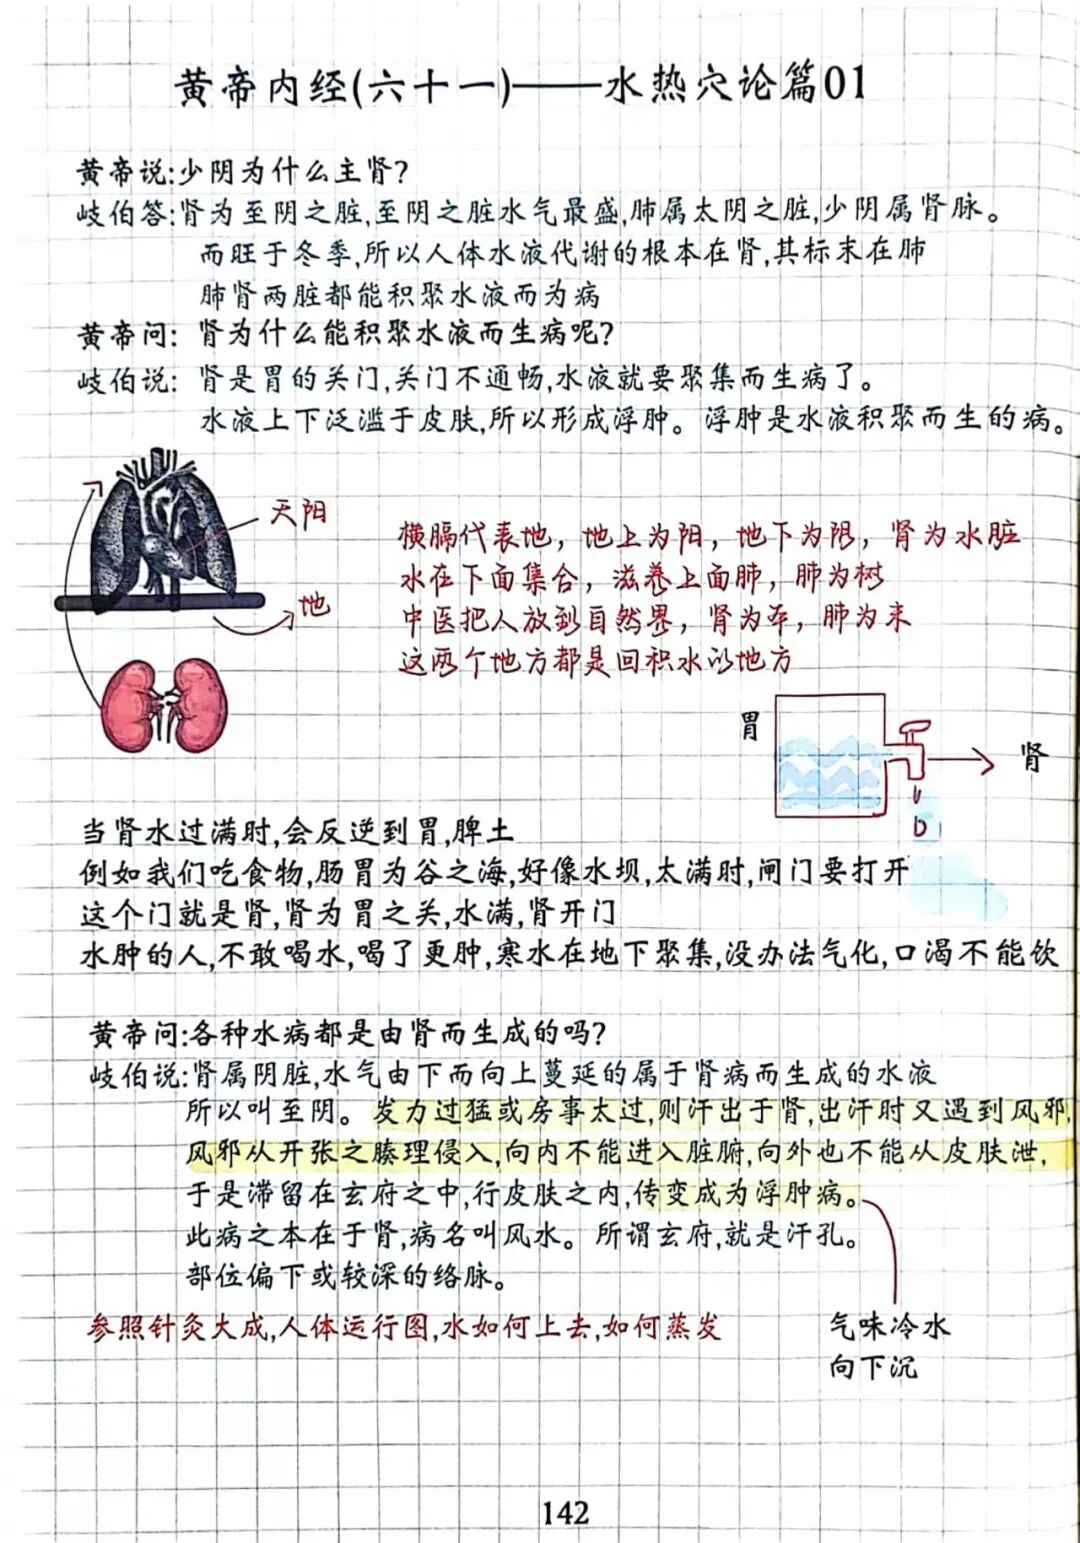 黄帝内经(六十一)——水热穴论篇01
黄帝说:少阴为什么主肾?
岐伯答:肾为至阴之脏,至阴之脏水气最盛,肺属太阴之脏,少阴属肾脉。
而旺于冬季,所以人体水液代谢的根本在肾,其标末在肺
肺肾两脏都能积聚水液而为病
黄帝问: 肾为什么能积聚水液而生病呢?
岐伯说: 肾是胃的关门,关门不通畅,水液就要聚集而生病了。
水液上下泛滥于皮肤,所以形成浮肿。浮肿是水液积聚而生的病。
天阳
地
横膈代表地，地上为阳，地下为阴，肾为水脏
水在下面集合，滋养上面肺，肺为树
中医把人放到自然界，肾为本，肺为末
这两个地方都是回积水的地方
胃
肾
当肾水过满时,会反逆到胃,脾土
例如我们吃食物,肠胃为谷之海,好像水坝,太满时,闸门要打开
这个门就是肾,肾为胃之关,水满,肾开门
水肿的人,不敢喝水,喝了更肿,寒水在地下聚集,没办法气化,口渴不能饮
黄帝问:各种水病都是由肾而生成的吗?
岐伯说:肾属阴脏,水气由下而向上蔓延的属于肾病而生成的水液
所以叫至阴。发力过猛或房事太过,则汗出于肾,出汗时又遇到风邪,
风邪从开张之腠理侵入,向内不能进入脏腑,向外也不能从皮肤泄,
于是滞留在玄府之中,行皮肤之内,传变成为浮肿病。
此病之本在于肾,病名叫风水。所谓玄府,就是汗孔。
部位偏下或较深的络脉。
参照针灸大成,人体运行图,水如何上去,如何蒸发
气味冷水
向下沉
142